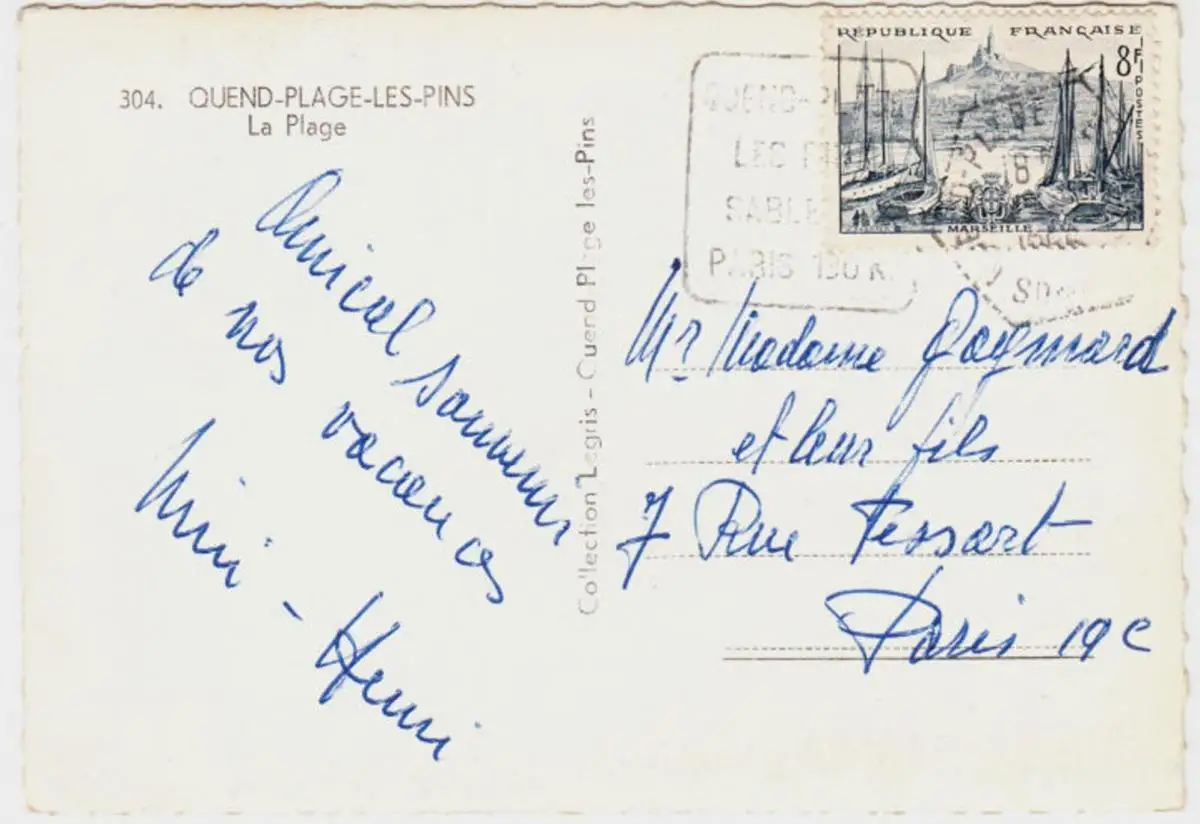 304. QUEND-PLAGE-LES-PINS
La Plage
Amical souvenir
de nos vacances
Mimi - Henri
Collection Legris - Quend Plage les-Pins
RÉPUBLIQUE FRANÇAISE
8F
POSTES
MARSEILLE
QUEND-PL
SABLE
PARIS 190 K
18
SO
Mr Madame Gaymard
et leur fils
7 Rue Tessart
Paris 19e